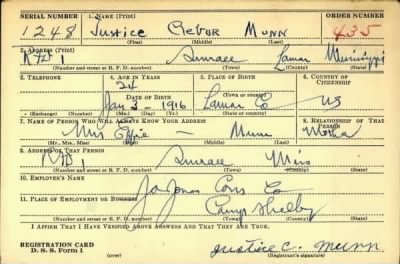 SERIAL NUMBER 1. NAME (Print) ORDER NUMBER
1248 Justice Munn 435
(First) (Middle) (Last)
2. ADDRESS (Print)
RFD 1 Sumrall Lamar Mississippi
(Number and street or R. F. D. number) (Town) (County) (State)
3. TELEPHONE 4. AGE IN YEARS 5. PLACE OF BIRTH 6. COUNTRY OF CITIZENSHIP
24
DATE OF BIRTH (Town or county)
Jan 3 - 1916 Lamar Co US
(Exchange) (Number) (Mo.) (Day) (Yr.) (State or country)
7. NAME OF PERSON WHO WILL ALWAYS KNOW YOUR ADDRESS 8. RELATIONSHIP OF THAT PERSON
Mrs Effie - Munn Mother
(Mr., Mrs., Miss) (First) (Middle) (Last)
9. ADDRESS OF THAT PERSON
RFD 1 Sumrall Miss
(Number and street or R. F. D. number) (Town) (County) (State)
10. EMPLOYER'S NAME
Jones Cons Co
11. PLACE OF EMPLOYMENT OR BUSINESS
Camp Shelby
(Number and street or R. F. D. number) (Town) (County) (State)
I AFFIRM THAT I HAVE VERIFIED ABOVE ANSWERS AND THAT THEY ARE TRUE.
REGISTRATION CARD
D. S. S. Form 1 (over) Justice C. Munn
(Registrant's signature)